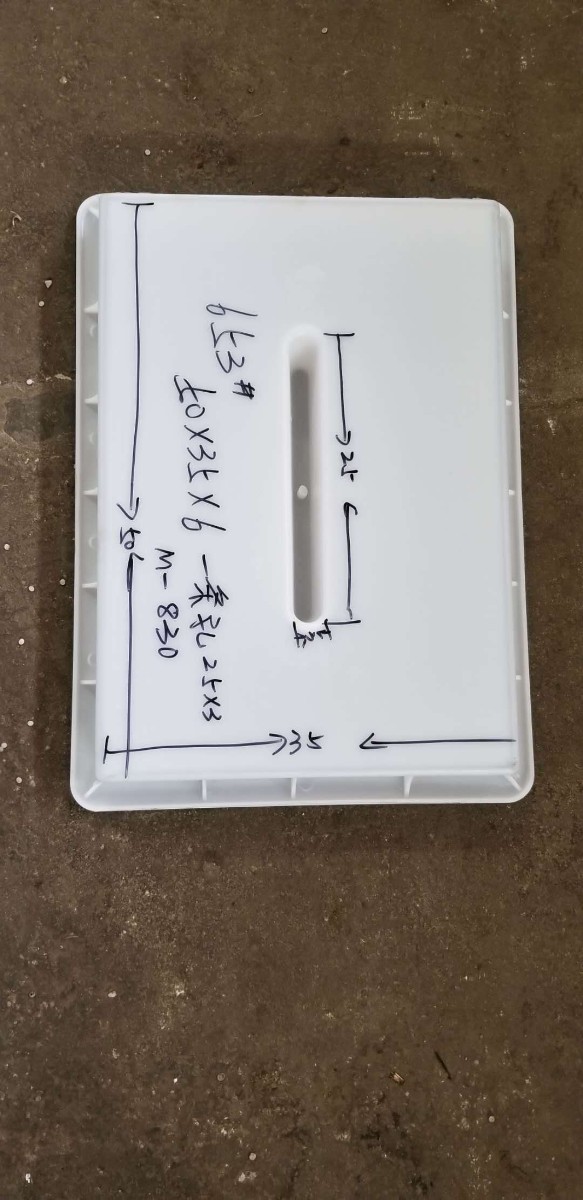 653#
50X35X6 一条孔25X3
M-830
50
25
35